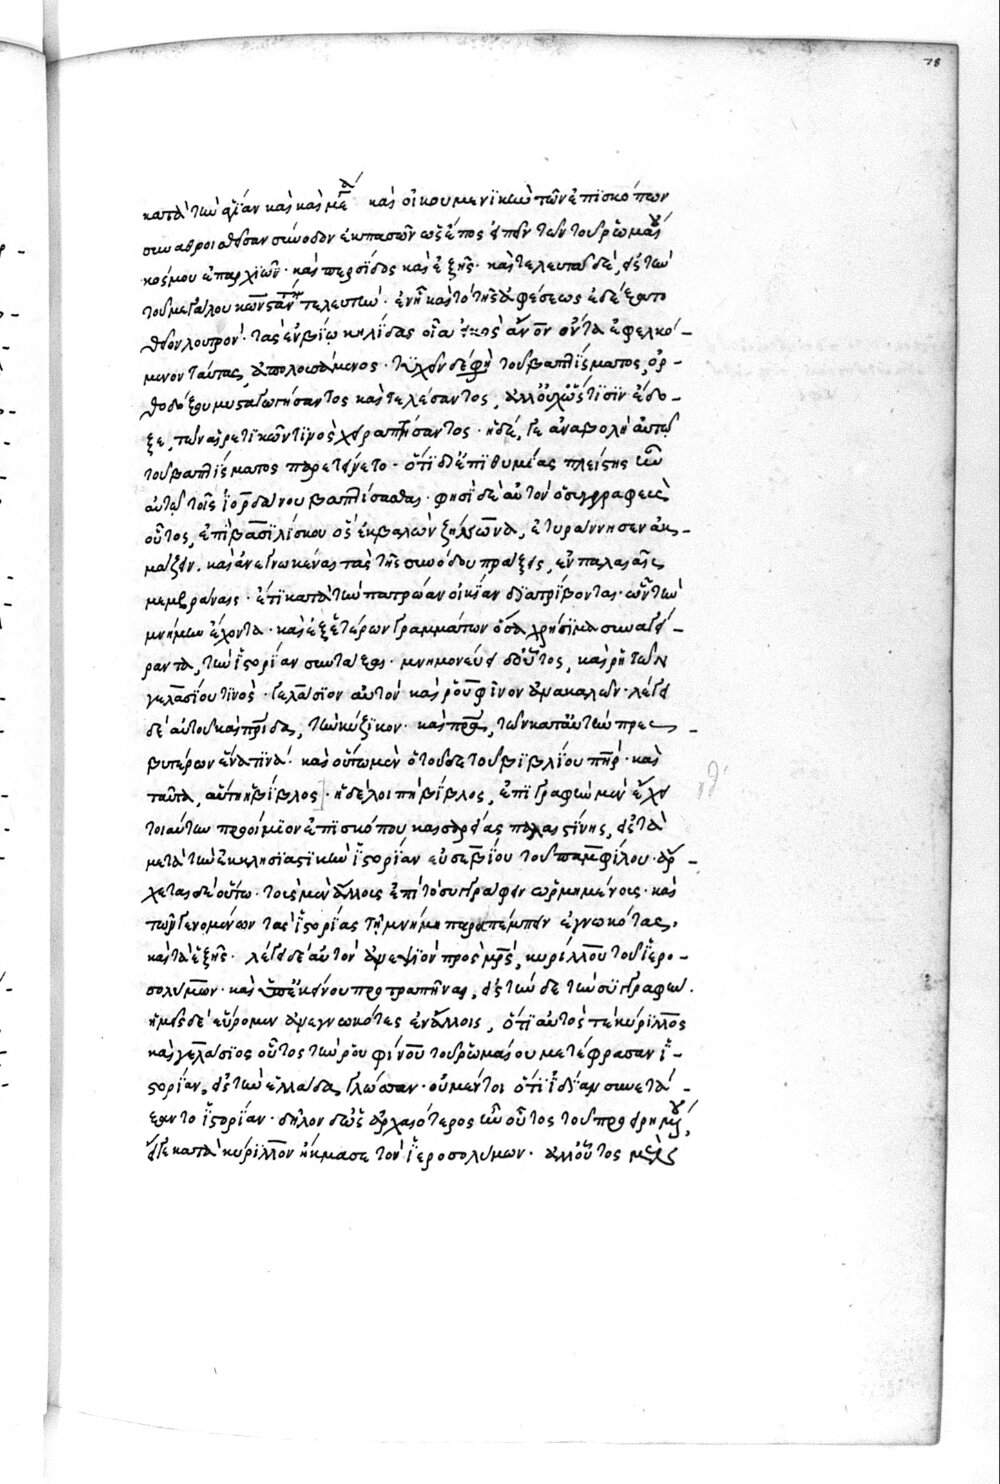 78
κατὰ τὴν ἁγίαν καὶ καὶ μεγά καὶ οἰκουμενϊκὴν τῶν ἐπϊσκόπων
συναθροισθῆσαν σύνοδον ἐκ πασῶν ὡς ἔπος εἰπεῖν τῶν τοῦ ῥωμαϊκοῦ
κόσμου ἐπαρχϊῶν · καὶ περσίδος καὶ ἑξῆς · καὶ τελευταῖ δὲ, εἰς τὴν
τοῦ μεγάλου κωνσταντίνου τελευτήν · ἐν ᾗ καὶ τὸ τῆς ἀφέσεως ἐδέξατο
θεῖον λουτρὸν · τὰς ἐν βίῳ κηλίδας οἷα εἰκὸς ἄνον ὄντα ἐφελκό-
μενον ταύτας, ἀπολουσάμενος · τυχεῖν δέ φη τοῦ βαπτίσματος, ὀρ-
θοδόξου μυσταγωγήσαντος καὶ τελέσαντος, ἀλλ' οὐχ ὥς τισιν ἔδο-
ξε, τῶν αἱρετικῶν τϊνὸς χειραπτήσαντος · ἡ δέ, γε ἀναβολὴ αὐτῷ
τοῦ βαπτίσματος παρετείνετο · ὅτϊ δι' ἐπϊθυμίας πλείστης ἦν
αὐτῷ τοῖς ἰορδάνου βαπτίσασθαι · φησὶ δὲ αὐτὸν ὁ συγγραφεὺς
οὗτος, ἐπὶ βασϊλίσκου ὃς ἐκβαλὼν ζήνωνα, ἐτυράννησεν ἀκ-
μάζειν · καὶ ἀνεγνωκέναι τὰς τῆς συνόδου πράξεις, ἐν παλαιαῖς
μεμβράναις · ἔτϊ κατὰ τὴν πατρῴαν οἰκίαν διατρίβοντα · ὧν τὴν
μνήμην ἔχοντα · καὶ ἐξ ἑτέρων γραμμάτων ὅσα χρήσϊμα συναγεί-
ραντα, τὴν ἱστορϊαν συντάξαι · μνημονεύει δ' οὗτος, καὶ ῥητῶν
γελασίου τϊνὸς · γελάσϊον αὐτὸν καὶ ῥουφῖνον ἀνακαλῶν · λέγει
δὲ αὐτοῦ καὶ πρίδα, τὴν κύζϊκον · καὶ πρα, τῶν κατ' αὐτὴν πρεσ-
βυτέρων ἕνα τϊνά · καὶ οὕτω μὲν ὁ τοῦδε τοῦ βϊβλίου πηρ · καὶ
ταῦτα, αὕτη ἡ βίβλος · ἡ δὲ λοιπὴ βίβλος, ἐπϊγραφὴν μὲν ἔχει
τοιαύτην προοίμϊον ἐπϊσκόπου καισαρείας παλαιστίνης, εἰς τὰ
μετὰ τὴν ἐκκλησϊαστϊκὴν ἱστορϊαν εὐσεβίου τοῦ παμφίλου · ἄρ-
χεται δὲ οὕτω · τοῖς μὲν ἄλλοις ἐπὶ τὸ συγγράφειν ὡρμημένοις · καὶ
τῶν γενομένων τὰς ἱστορίας τῇ μνήμῃ παραπέμπειν ἐγνωκότας,
καὶ τὰ ἑξῆς · λέγει δὲ αὐτὸν ἀνεψϊὸν πρὸς μρς, κυρίλλου τοῦ ἱερο-
σολύμων · καὶ ὑπ' ἐκείνου προτραπῆναι, εἰς τὴν δε τὴν συγγραφην.
ἡμεῖς δὲ εὕρομεν ἀνεγνωκότες ἐν ἄλλοις, ὅτϊ αὐτὸς τε κύρϊλλος
καὶ γελάσϊος οὗτος τὴν ῥουφίνου τοῦ ῥωμαίου μετέφρασαν ἱ-
στορϊαν, εἰς τὴν ἑλλάδα γλῶσσαν · οὐ μέντοι ὅτϊ ἰδίαν συνετά-
ξαντο ἱστορϊαν · δῆλον δ' ὡς ἀρχαιότερος ἦν οὗτος τοῦ προειρημένου,
εἴγε κατὰ κύρϊλλον ἤκμασε τὸν ἱεροσολύμων · ἀλλ' οὗτος μὲν